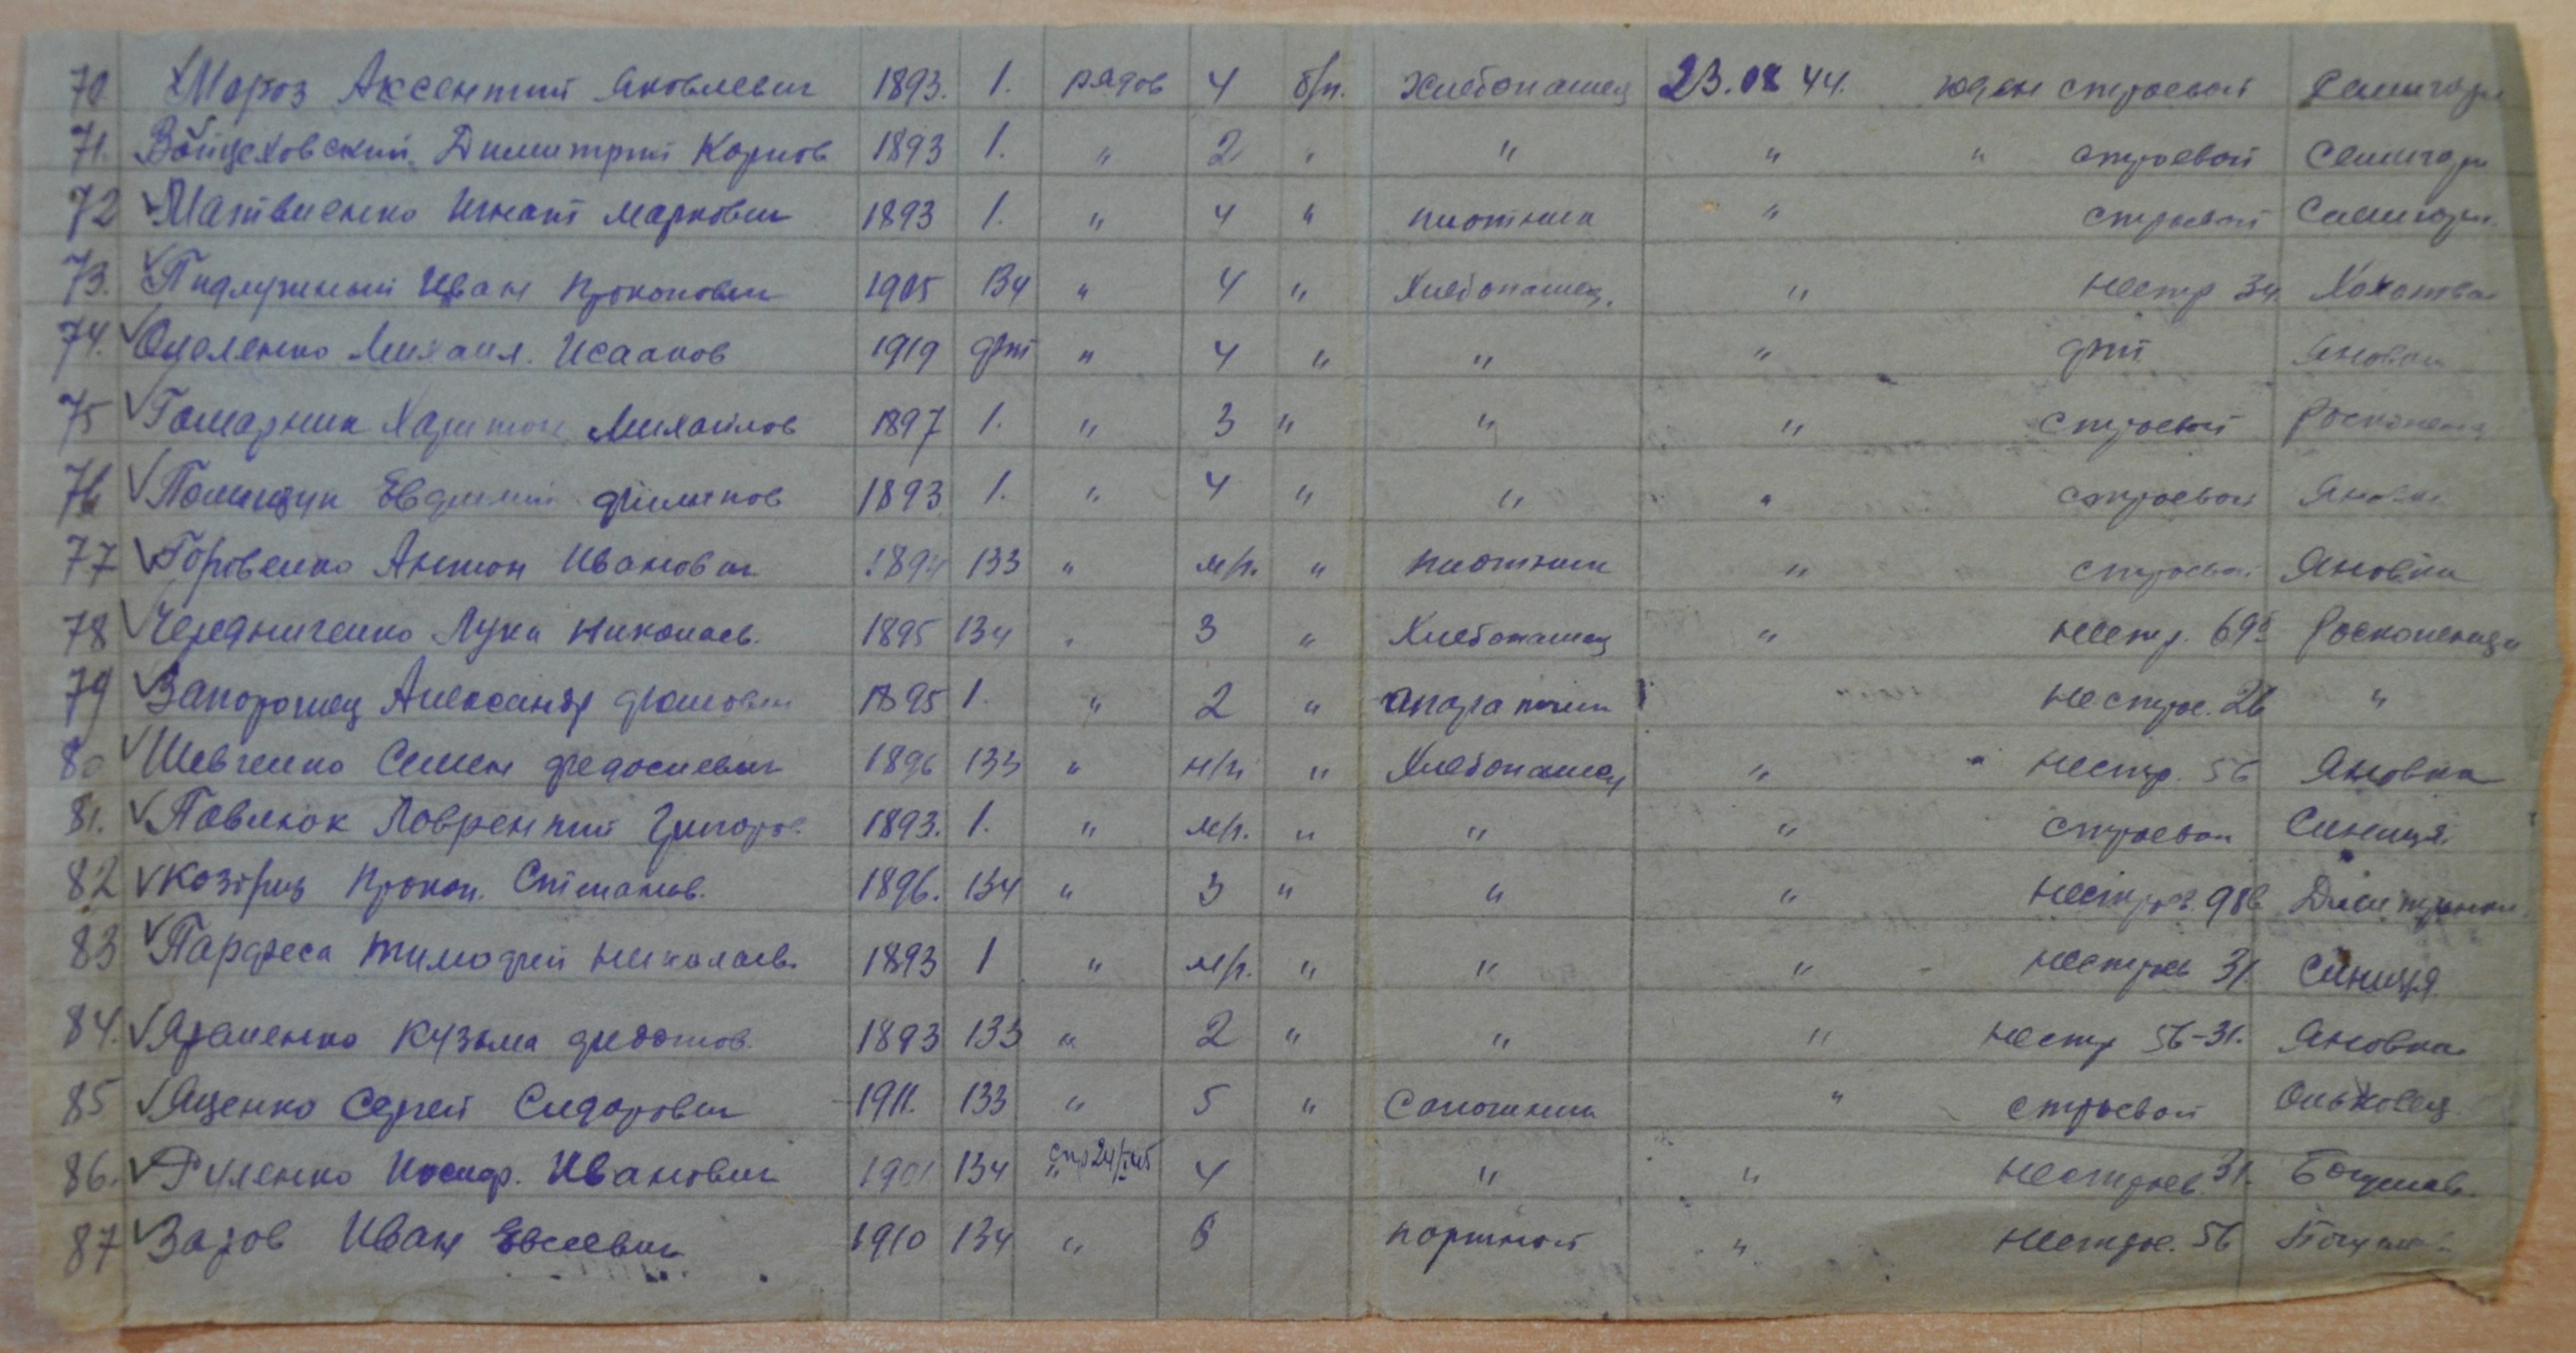 70 Мороз Аксентий Яковлевич 1893. 1. рядов 4 б/п. Хлебопашец 23.08 44. годен строевой Семигоры
71. Войцеховский Димитрий Корнов 1893 1. " 2 " " " " строевой Семигоры
72 Матвиенко Игнат Маркович 1893 1. " 4 " плотник " строевой Семигоры.
73. Пидлужный Иван Прокопович 1905 134 " 4 " Хлебопашец. " нестр 34
74. Омеленко Михаил. Исааков 1919 " 4 " " " Яновка
75 Гамарник Харитон Михайлов 1897 1. " 3 " " " строевой Роскопенц
76 Полищук Филипов 1893 1. " 4 " " " строевой Яновка
77 Горовенко Антон Иванович 1894 133 " м/г. " плотник " строевой Яновка
78 Чередниченко Лука Николаев. 1895 134 " 3 " Хлебопашец " нестр. 69б Росконенцы
79 Запорожец Александр 1895 1. " 2 " нестрое. 26 "
80 Шевченко Семен Федосиевич 1896 133 " н/г " Хлебопашец " нестр. 56 Яновка
81. Павлюк Лаврентий Григоров. 1893. 1. " м/г. " " " строевой Синиця.
82 Прокоп. Степанов. 1896. 134 " 3 " " " нестрое. 98б
83 Парфеса Тимофей Николаев. 1893 1 " м/г. " " " нестроев 31. Синиця
84. Яременко Кузьма Федотов. 1893 133 " 2 " " " нестр 56-31. Яновка
85 Яценко Сергей Сидорович 1911. 133 " 5 " Сапожник " строевой Ольховец.
86. Руленко Иосиф. Иванович 1901 134 " 4 " " нестроев. 31. Богуслав.
87 Заров Иван Евсеевич 1910 134 " 6 портной " нестрое. 56 Богуслав